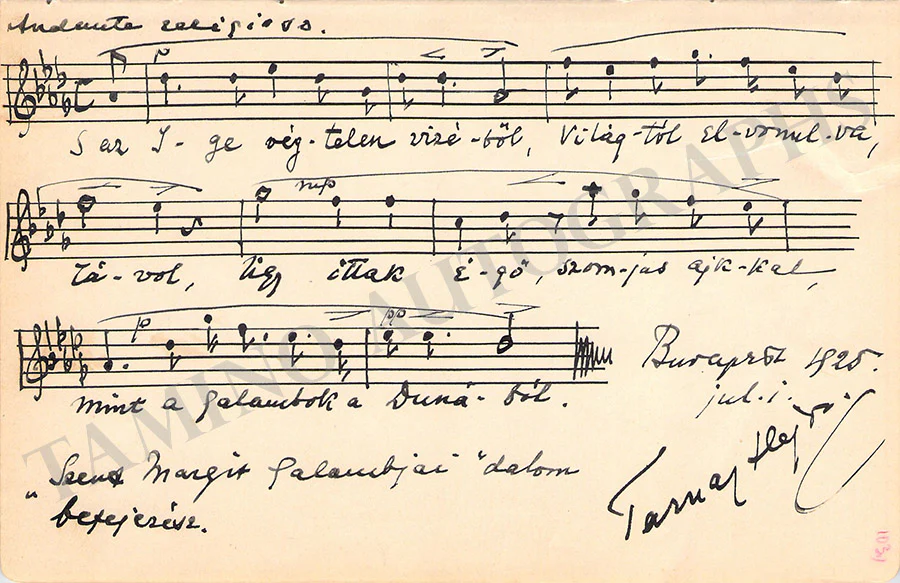 Andante religioso.
p
S az I-ge vég-telen vizé-ből, Világ-tól el-vonul-va,
mp
tá-vol, úgy ittak é-gő, szom-jas ajk-kal,
p pp
mint a galambok a Duná-ból.
Budapest 1925.
jul. 1.
Tarnay
„Szent Margit Galambjai" dalom
befejezése.
TAMINO AUTOGRAPHS